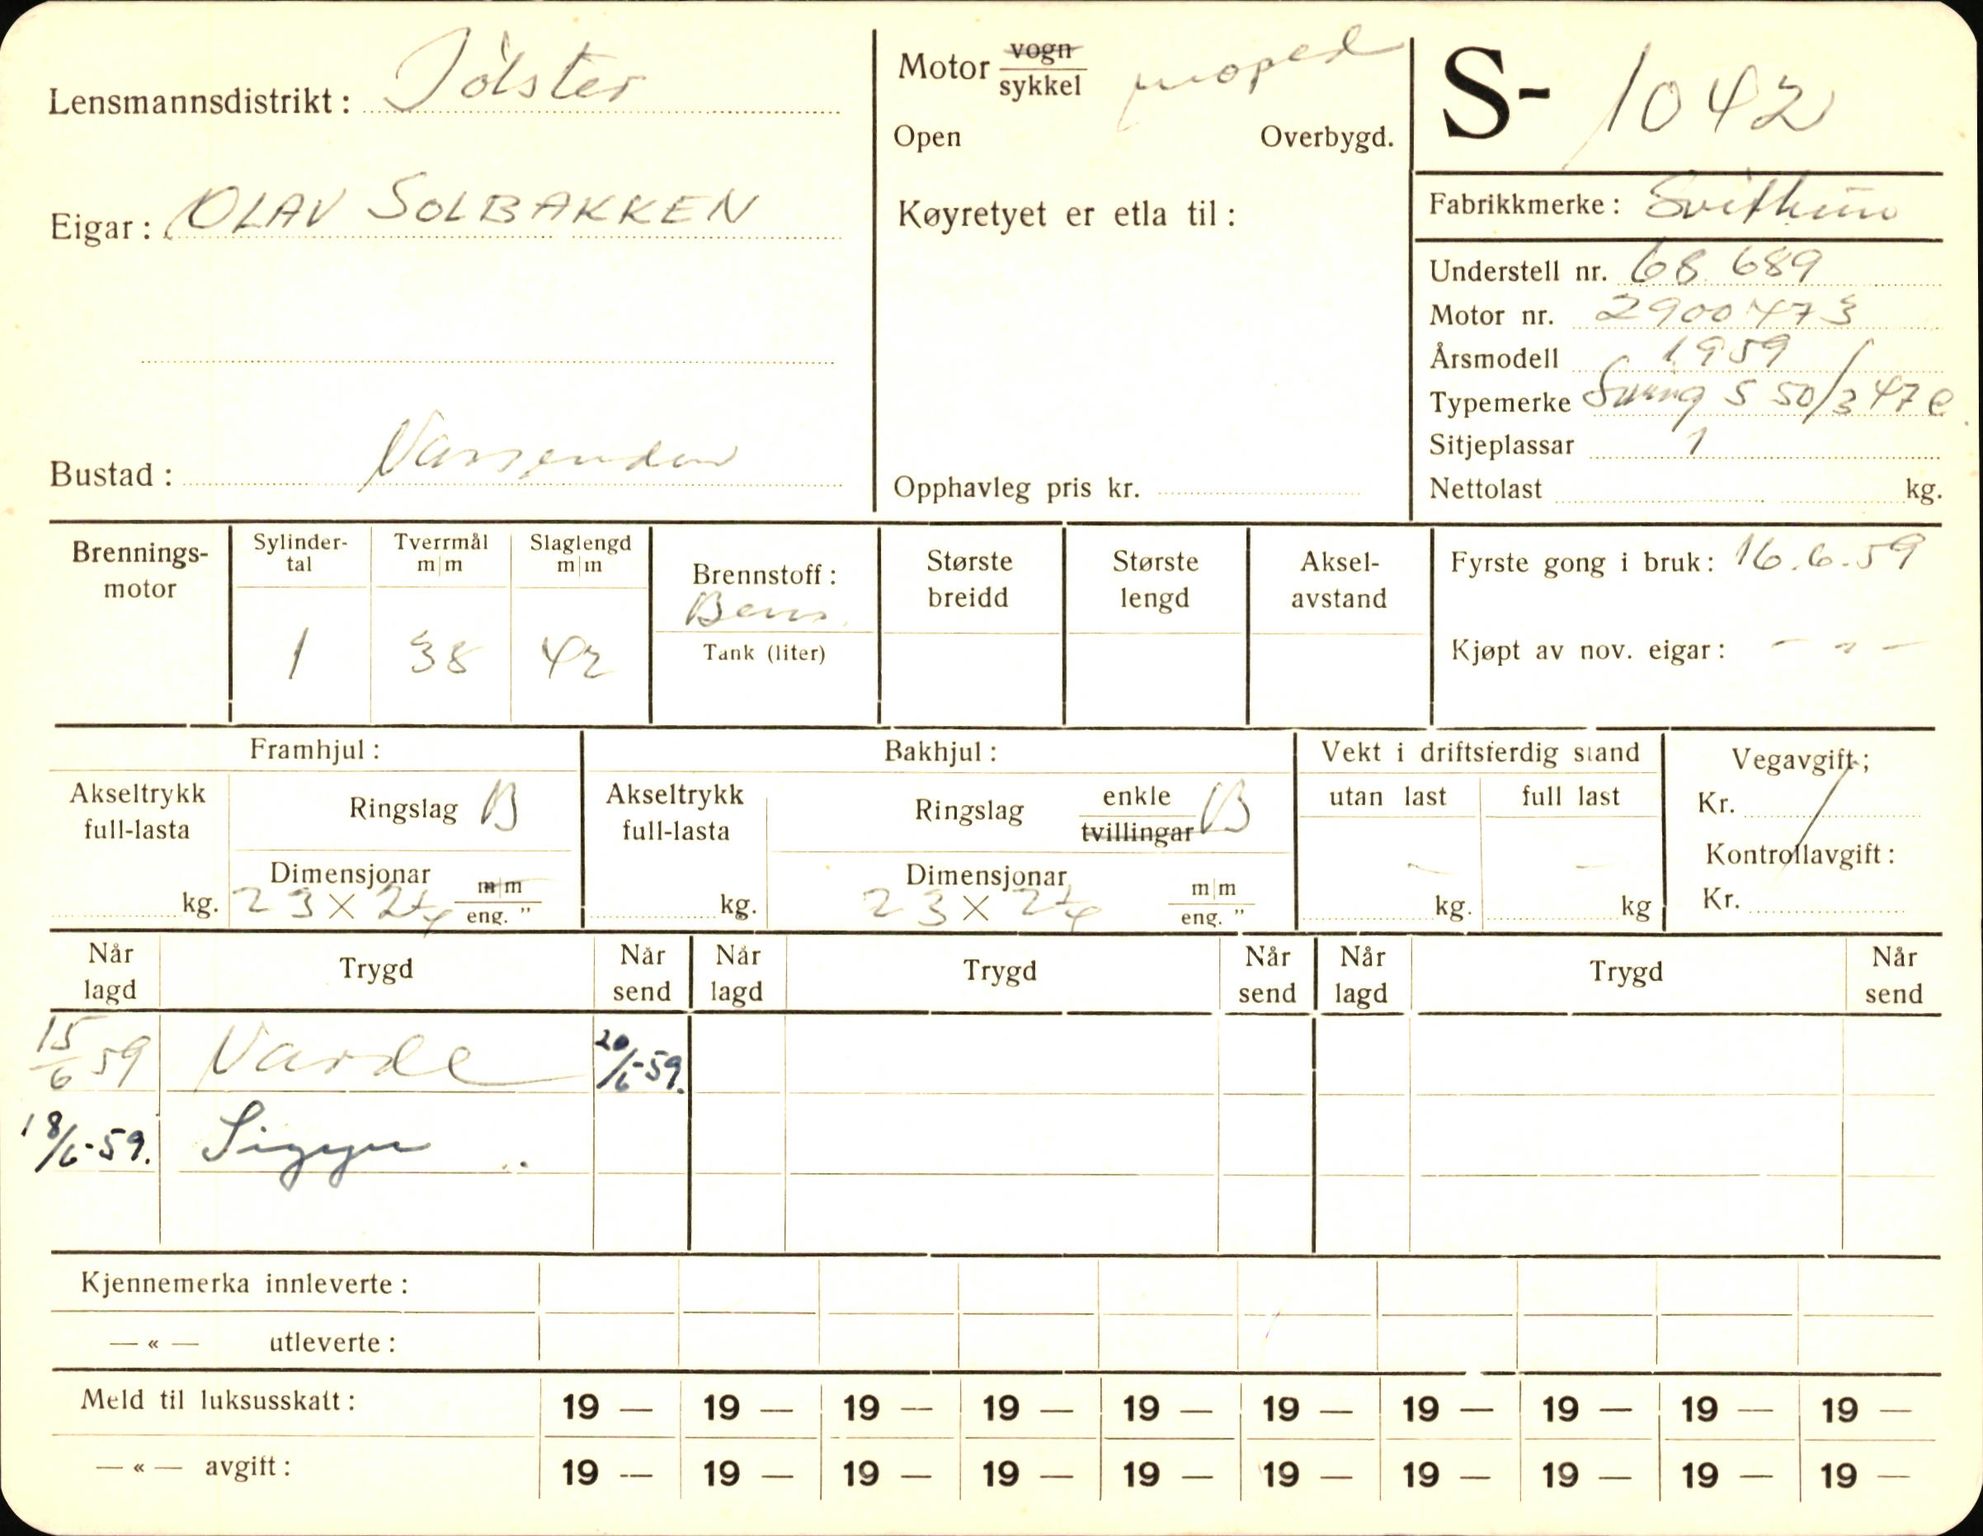 Lensmannsdistrikt: Jølster
Eigar: OLAV SOLBAKKEN
Bustad: Vassenden
Motor vogn sykkel moped
Open Overbygd.
Køyretyet er etla til:
Opphavleg pris kr.
S- 1042
Fabrikkmerke: Svithun
Understell nr. 68 689
Motor nr. 2900473
Årsmodell 1959
Typemerke Swing S 50/347 e
Sitjeplassar 1
Nettolast kg.
Brennings-motor
Sylinder-tal 1
Tverrmål m|m 38
Slaglengd m|m 42
Brennstoff: Bens.
Tank (liter)
Største breidd
Største lengd
Aksel-avstand
Fyrste gong i bruk: 16.6.59
Kjøpt av nov. eigar: - " -
Framhjul:
Akseltrykk full-lasta kg.
Ringslag B
Dimensjonar 23 x 2¼ m|m eng. "
Bakhjul:
Akseltrykk full-lasta kg.
Ringslag enkle tvillingar B
Dimensjonar 23 x 2¼ m|m eng. "
Vekt i driftsferdig stand
utan last - kg.
full last - kg
Vegavgift;
Kr.
Kontrollavgift:
Kr.
Når lagd Trygd Når send Når lagd Trygd Når send Når lagd Trygd Når send
15/6 59 Varde 20/6-59.
18/6-59. Sigyn
Kjennemerka innleverte:
— « — utleverte:
Meld til luksusskatt: 19 — 19 — 19 — 19 — 19 — 19 — 19 — 19 — 19 — 19 —
— « — avgift: 19 — 19 — 19 — 19 — 19 — 19 — 19 — 19 — 19 — 19 —